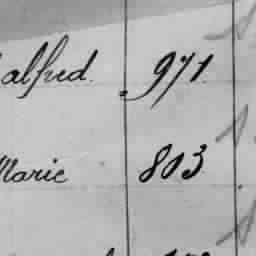 alfred. 971
Marie 803